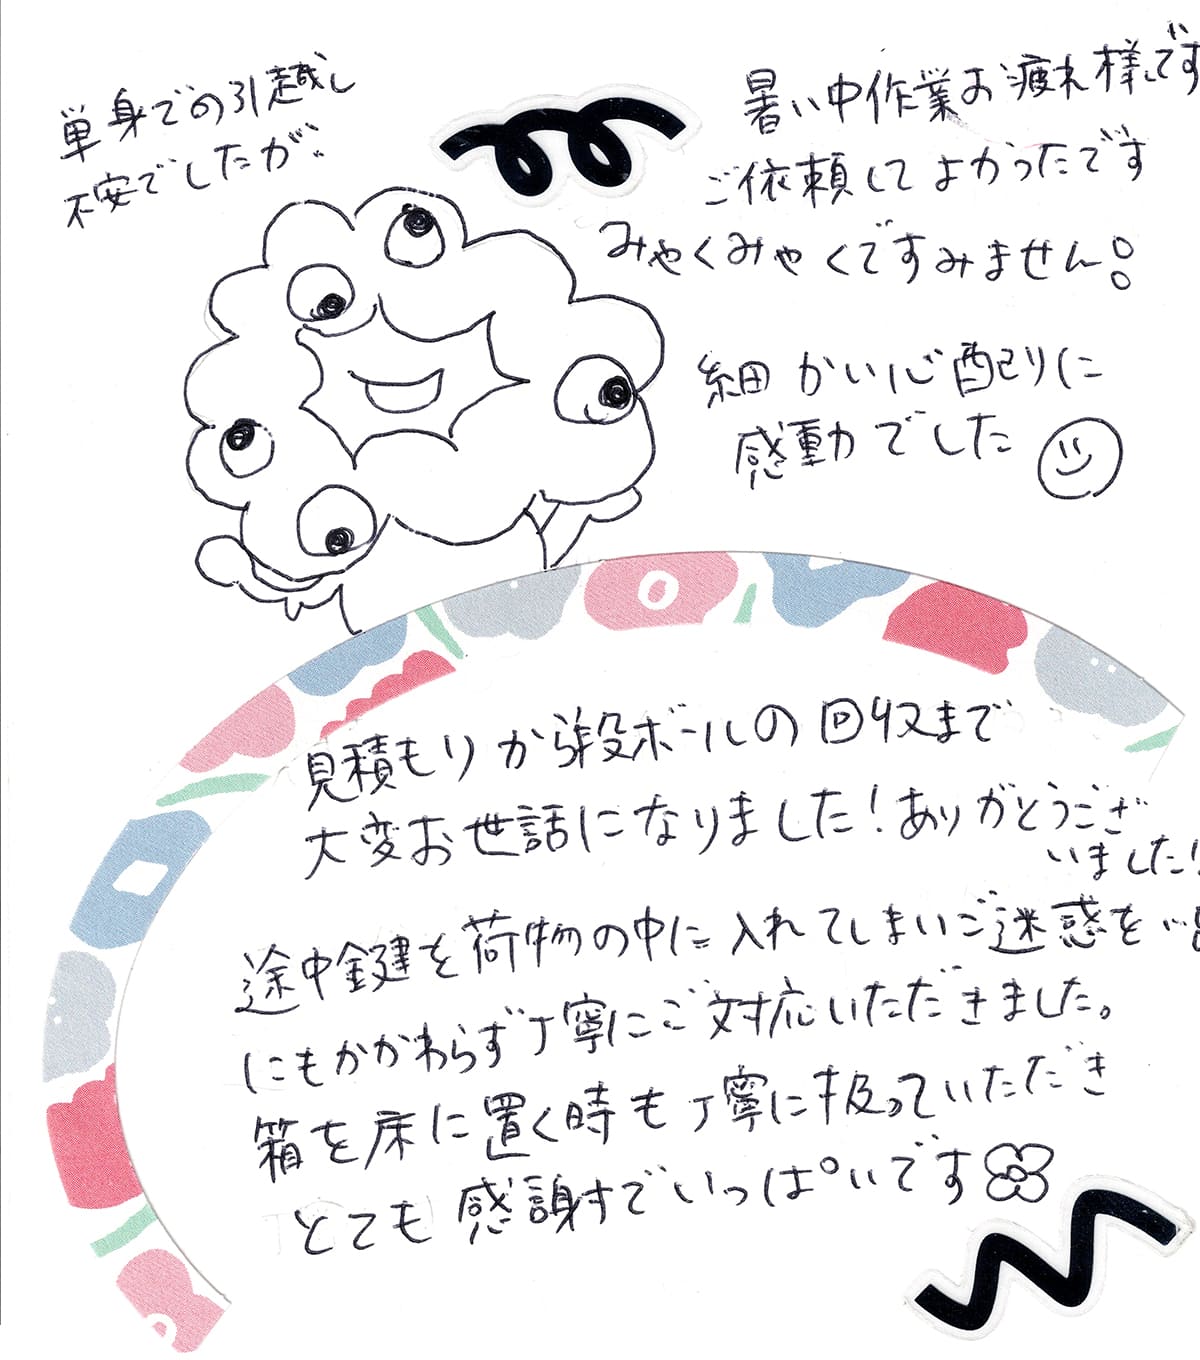 単身での引越し
不安でしたが、
暑い中作業お疲れ様です
ご依頼してよかったです
みゃくみゃくですみません!!
細かい心配りに
感動でした
見積もりから段ボールの回収まで
大変お世話になりました!ありがとうござ
いました!
途中鍵を荷物の中に入れてしまいご迷惑を
にもかかわらず丁寧にご対応いただきました。
箱を床に置く時も丁寧に扱っていただき
とても感謝すでいっぱいです